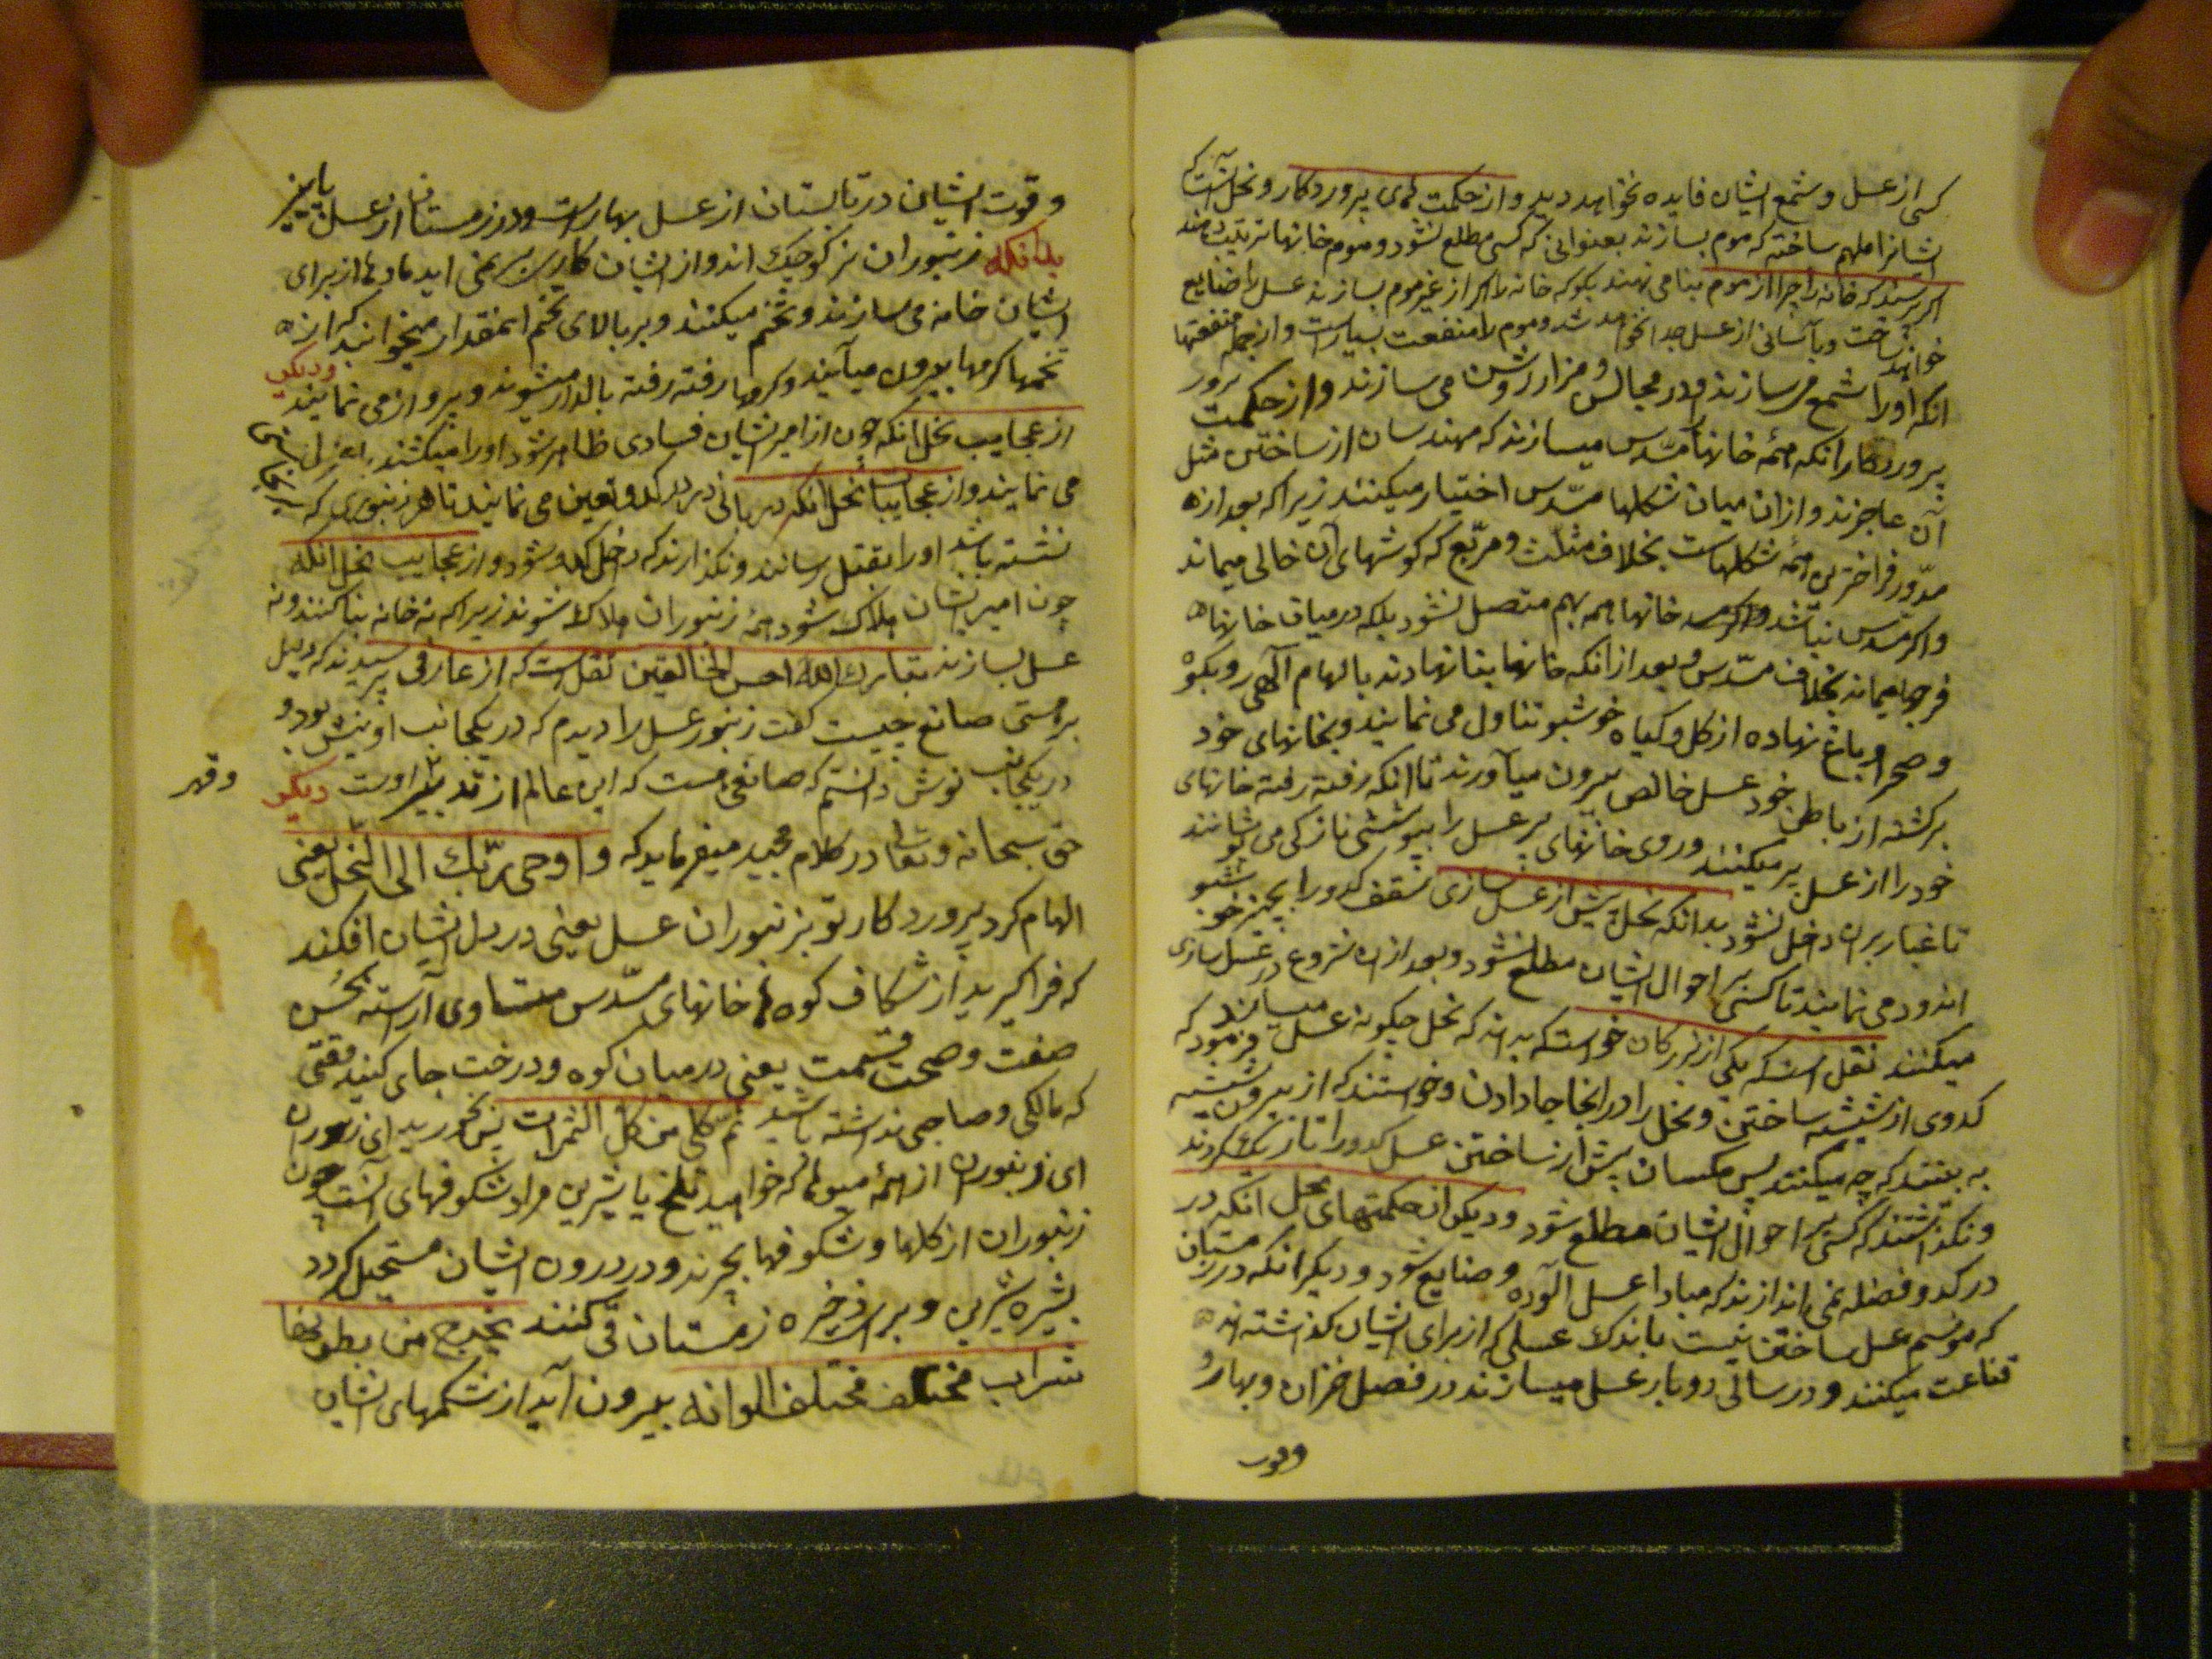 کسی از عسل و شمع ایشان فایده نخواهد دید و از حکمت های پروردکار و نحل آنست که
ایشانرا ملهم ساخته که موم بسازند بعنوانی که کسی مطلع نشود و موم خانها ترتیب دهند
اکر پرسند که خانه را چرا از موم بنا می نهند بکو که خانه را اکر از غیر موم بسازند عسل را ضایع
خواهد ساخت و بآسانی از عسل جدا نخواهد شد و موم را منفعت بسیارست و از جمله منفعتها
انکه اورا شمع میسازند و در مجالس و مزار روشن می سازند و از حکمت
پروردکار انکه همه خانها مسدّس میسازند که مهندسان از ساختن مثل
آن عاجزند و از ان میان شکلها مسدّس اختیار میکنند زیرا که بعد از
مدّور فراخترین همه شکلهاست بخلاف مثلث و مربّع که کوشهای آن خالی میماند
و اکر مسدّس نباشد خانها همه بهم متصل نشود بلکه در میان خانها
فرجها میماند بخلاف مسدّس و بعد از انکه خانها بنا نهادند بالهام آلهی رو بکوه
و صحرا و باغ نهاده از کل و کیاه خوشبو تناول می نمایند و بخانهای خود
برکشته از باطن خود عسل خالص بیرون میآورند تا انکه رفته رفته خانهای
خود را از عسل پر میکنند و روی خانهای پر عسل را بپوششی نازکی می پوشانند
تا غبار بران داخل نشود بدانکه نحل پیش از عسل سازی سقف کدو را بچیز خوشبو
اندود می نمایند تا کسی بر احوال ایشان مطلع نشود و بعد از ان شروع در عسل سازی
میکنند نقل است که یکی از بزرکان خواست که بداند که نحل چکونه عسل میسازند فرمود که
کدوی از شیشه ساختن و نحل را در انجا جا دادن و خواستند که از بیرون شیشه
به بینند که چه میکنند پس مکسان پیش از ساختن عسل کدو را تاریک کردند
و نکذاشتند که کسی بر احوال ایشان مطلع شود و دیکر از حکمتهای نحل انکه در
در کدو فضله نمی اندازند که مبادا عسل آلوده و ضایع شود و دیکر انکه در زمستان
که موسم عسل ساختن نیست باندک عسلی که از برای ایشان کذاشته اند
قناعت میکنند و در سالی دو بار عسل میسازند در فصل خزان و بهار
وقوت
و قوت ایشان در تابستان از عسل بهارست و در زمستان از عسل پاییز
بدانکه زنبوران نر کوچک اند و از ایشان کاری بر نمی اید مادها از برای
ایشان خانه می سازند و تخم میکنند و بر بالای تخم انمقدار میخوابند که از
تخمها کرمها بیرون میآیند و کرمها رفته رفته بالدار میشوند و پرواز می نمایند ودیکر
از عجایب نحل انکه چون از امیر ایشان فسادی ظاهر شود او را میکشند
می نمایند و از عجایب نحل انکه دربانی در در کدو تعین می نمایند تا هر زنبوری که
نشسته باشد او را بقتل رسانند و نکذارند که داخل کدو شود و از عجایب نحل انکه
چون امیر ایشان هلاک شود همه زنبوران هلاک شوند زیرا که نه خانه بنا کنند و نه
عسل بسازند تبارک الله احسن الخالقین نقل است که از عارفی پرسیدند که دلیل
بر هستی صانع چیست کفت زنبور عسل را دیدم که در یکجانب او نیش بود و
در یکجانب نوش دانستم که صانعی هست که این عالم از تدبیر اوست دیکر
و قهر
حق سبحانه و تعالی در کلام مجید میفرماید که و اوحی ربّک الی النّحل یعنی
الهام کرد پروردکار تو بزنبوران عسل یعنی در دل ایشان افکند
که فرا کیرید از شکاف کوه خانهای مسدّس متساوی آراسته بحُسن
صفت و صحت قسمت یعنی در میان کوه و درخت جای کنید وقتی
که مالکی و صاحبی نداشته باشید ثمّ کلی من کل الثمرات پس بخورید ای زنبوران
ای زنبوران از همه میوها که خواهید تلخ یا شیرین مراد شکوفهای آنست چون
زنبوران از کلها و شکوفها بچرند و در درون ایشان مستحیل کردد
بشیره شیرین و برای ذخیره زمستان قی کنند یخرج من بطونها
شراب مختلف الوانه بیرون آید از شکمهای ایشان